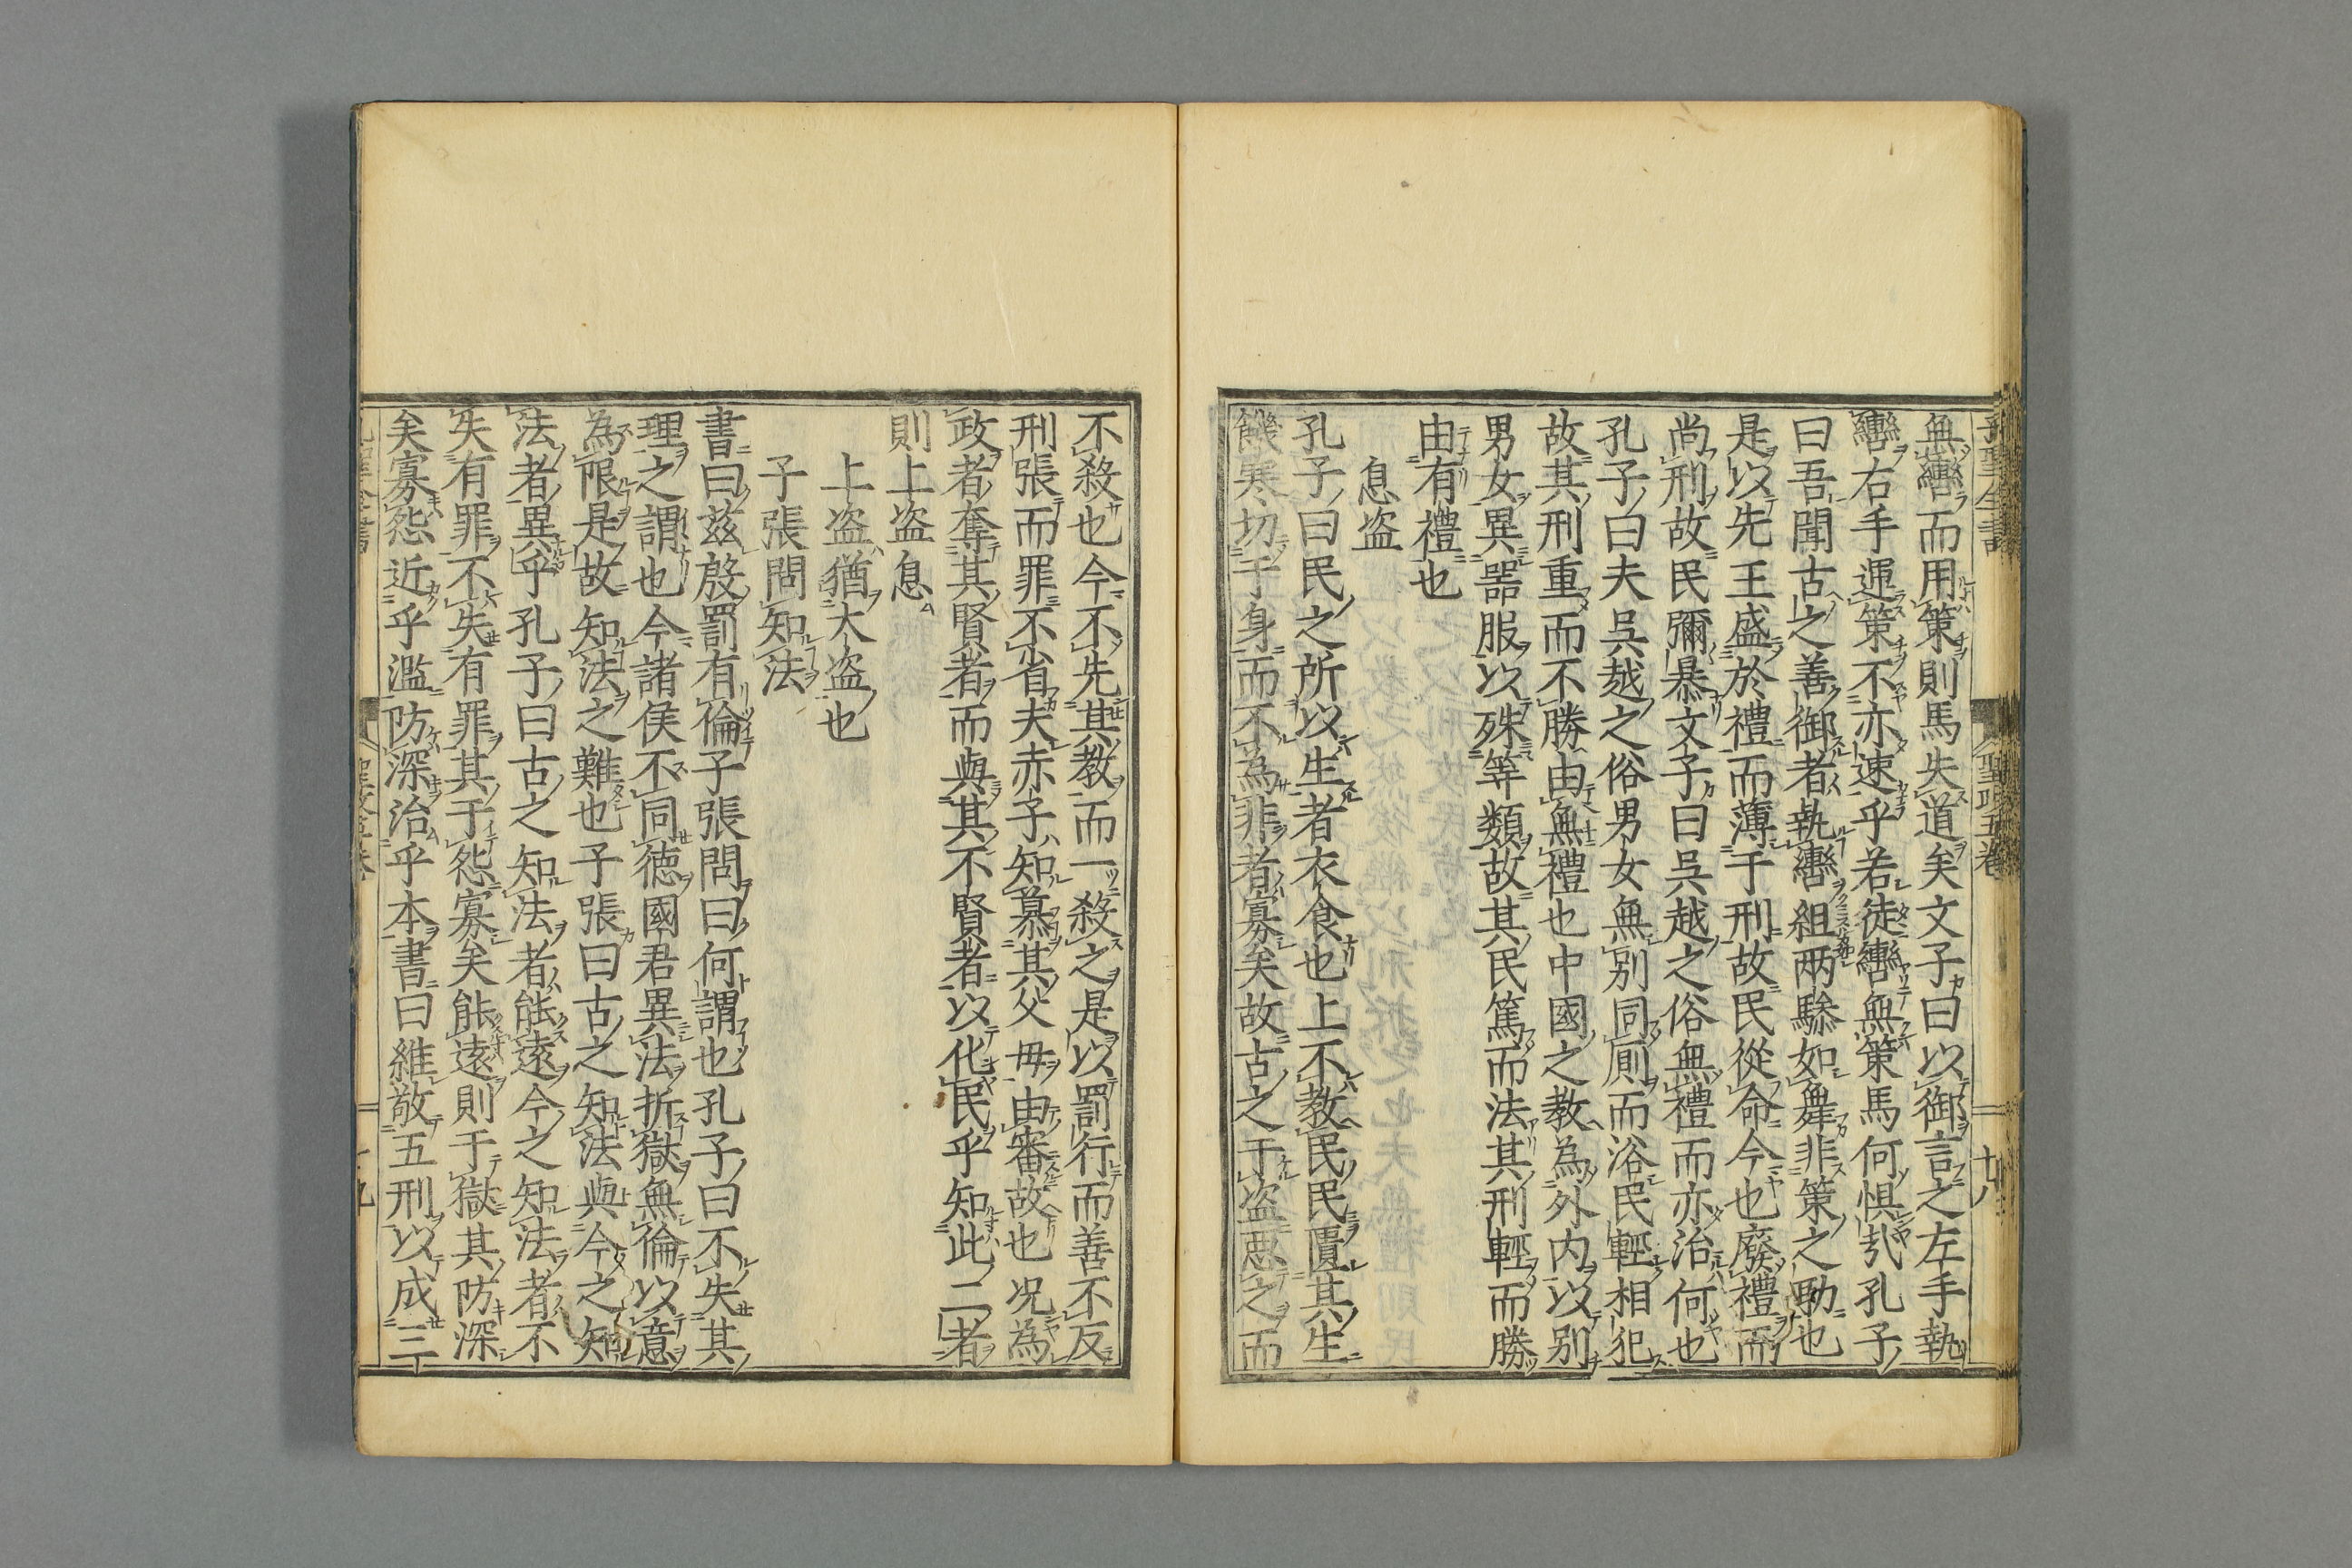 無轡而用策則馬失道矣文子曰以御言之左手執
轡右手運策不亦速乎若徒轡無策馬何懼㢤孔子
曰吾聞古之善御者執轡組兩驂如舞非策之助也
是以先王盛於禮而薄于刑故民從命今也廢禮而
尚刑故民彌暴文子曰吳越之俗無禮而亦治何也
孔子曰夫吳越之俗男女無別同厠而浴民輕相犯
故其刑重而不勝由無禮也中國之教為外內以別
男女異噐服以殊等類故其民篤而法其刑輕而勝
由有禮也
息盗
孔子曰民之所以生者衣食也上不教民民匱其生
饑寒切于身而不為非者寡矣故古之于盗惡之而
聖政五卷
十八
不殺也今不先其教而一殺之是以罰行而善不反
刑張而罪不省夫赤子知慕其父母由審故也况為
政者奪其賢者而與其不賢者以化民乎知此二者
則上盗息
上盗猶大盗也
子張問知法
書曰茲殷罰有倫子張問曰何謂也孔子曰不失其
理之謂也今諸侯不同德國君異法折獄無倫以意
為限是故知法之難也子張曰古之知法與今之知
法者異乎孔子曰古之知法者能遠今之知法者不
失有罪不失有罪其于怨寡矣能遠則于獄其防深
矣寡怨近乎濫防深治乎本書曰維敬五刑以成三